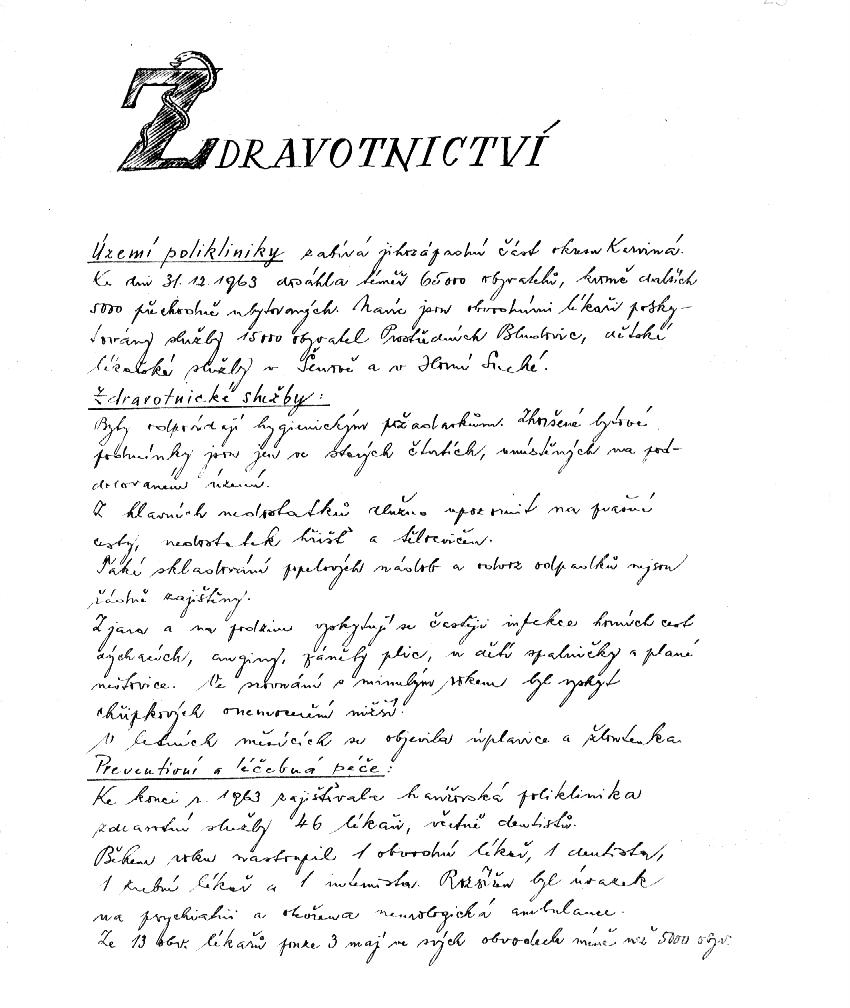 ZDRAVOTNICTVÍ
Území polikliniky zabírá jihozápadní část okresu Karviná.
Ke dni 31.12.1963 dosáhla téměř 65000 obyvatelů, kromě dalších
5000 přechodně ubytovaných. Navíc jsou obvodními lékaři posky-
továny služby 15000 obyvatel Prostředních Bludovic, dětské
lékařské služby v Šenově a v Horní Suché.
Zdravotnické služby:
Byty odpovídají hygienickým požadavkům. Zhoršené bytové
podmínky jsou jen ve starých čtvrtích, umístěných na pod-
dolovaném území.
Z hlavních nedostatků dlužno upozornit na prašné
cesty, nedostatek hřišť a tělocvičen.
Také skladování popelových nádob a odvoz odpadků nejsou
řádně zajištěny.
Z jara a na podzim vyskytují se častěji infekce horních cest
dýchacích, anginy, záněty plic, u dětí spalničky a plané
neštovice. Ve srovnání s minulým rokem byl výskyt
chřipkových onemocnění nižší.
V letních měsících se objevila úplavice a žloutenka.
Preventivní a léčebná péče:
Ke konci r. 1963 zajišťovala havířovská poliklinika
zdravotní služby 46 lékařů, včetně dentistů.
Během roku nastoupil 1 obvodní lékař, 1 dentista,
1 zubní lékař a 1 internista. Rozšířen byl úvazek
na psychiatrii a otevřena neurologická ambulance.
Ze 13 obv. lékařů pouze 3 mají ve svých obvodech méně než 5000 obyv.